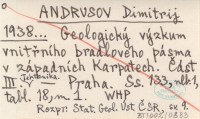 ANDRUSOV Dimitrij
1938... Geologický výzkum
vnitřního bradlového pásma
v západních Karpatech. Část
III. Tektonika. — Praha. Ss. 133,
tabl. 18, m 1. WHP
Rozpr. Stát. Geol. Úst. ČSR, sv. 9.